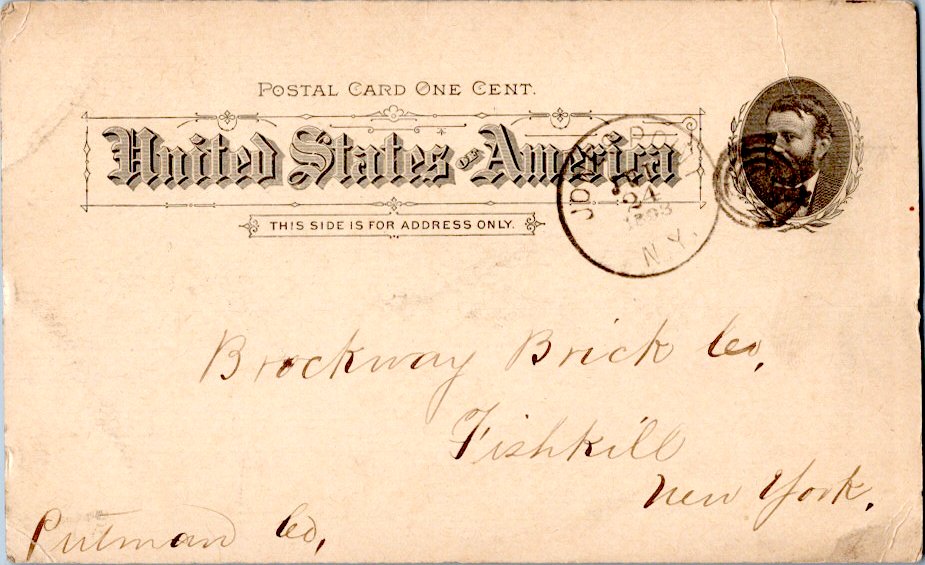 POSTAL CARD ONE CENT.
United States OF America
THIS SIDE IS FOR ADDRESS ONLY.
JONES POINT
24
N.Y.
Brockway Brick Co,
Fishkill
New York,
Putman Co,